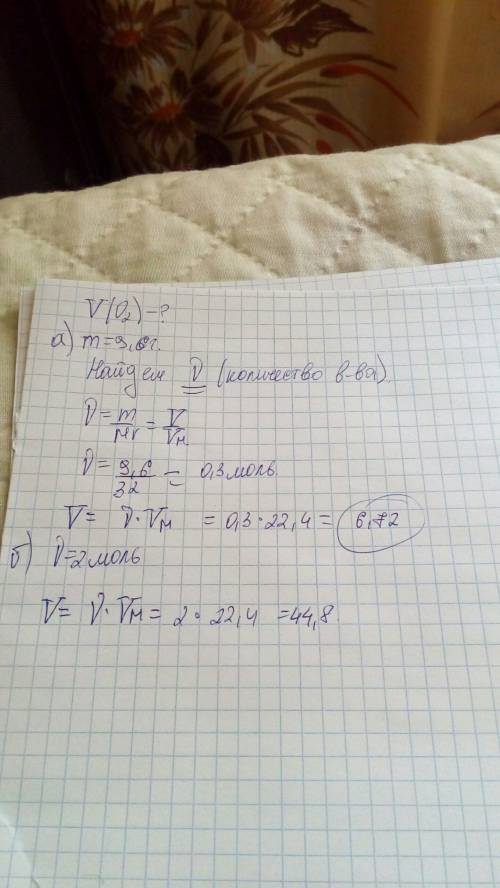 V(O₂)-?
а) m=9,6г.
Найдем ν (количество в-ва).
ν = m/Mr = V/Vм
ν = 9,6/32 = 0,3 моль
V = ν · Vм = 0,3 · 22,4 = 6,72
б) ν=2 моль
V = ν · Vм = 2 · 22,4 = 44,8.